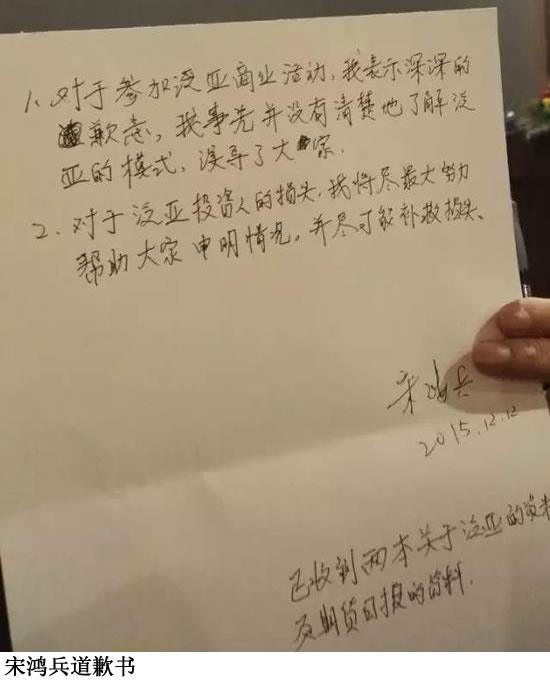 1、对于参加泛亚商业活动，我表示深深的
歉意，我事先并没有清楚地了解泛
亚的模式，误导了大家．
2、对于泛亚投资人的损失，我将尽最大努力
帮助大家申明情况，并尽可能补救损失、
宋鸿兵
2015.12.12
已收到两本关于泛亚的资料
及期货日报的资料．
宋鸿兵道歉书